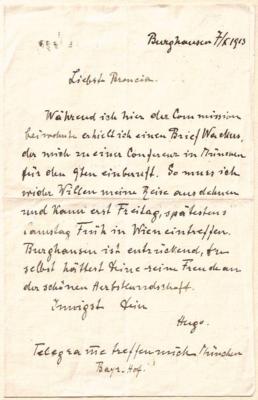 Burghausen 7/X 1913
Liebste Broncia.
Während ich hier der Commission
beiwohnte erhielt ich einen Brief Wackers,
der mich zu einer Conferenz in München
für den 9ten einberuft. So muss ich
wider Willen meine Reise ausdehnen
und kann erst Freitag, spätestens
Samstag Früh in Wien eintreffen.
Burghausen ist entzückend, Du
selbst hättest Deine reine Freude an
der schönen Herbstlandschaft.
Innigst Dein
Hugo.
Telegramme treffen mich München
Bayr. Hof.